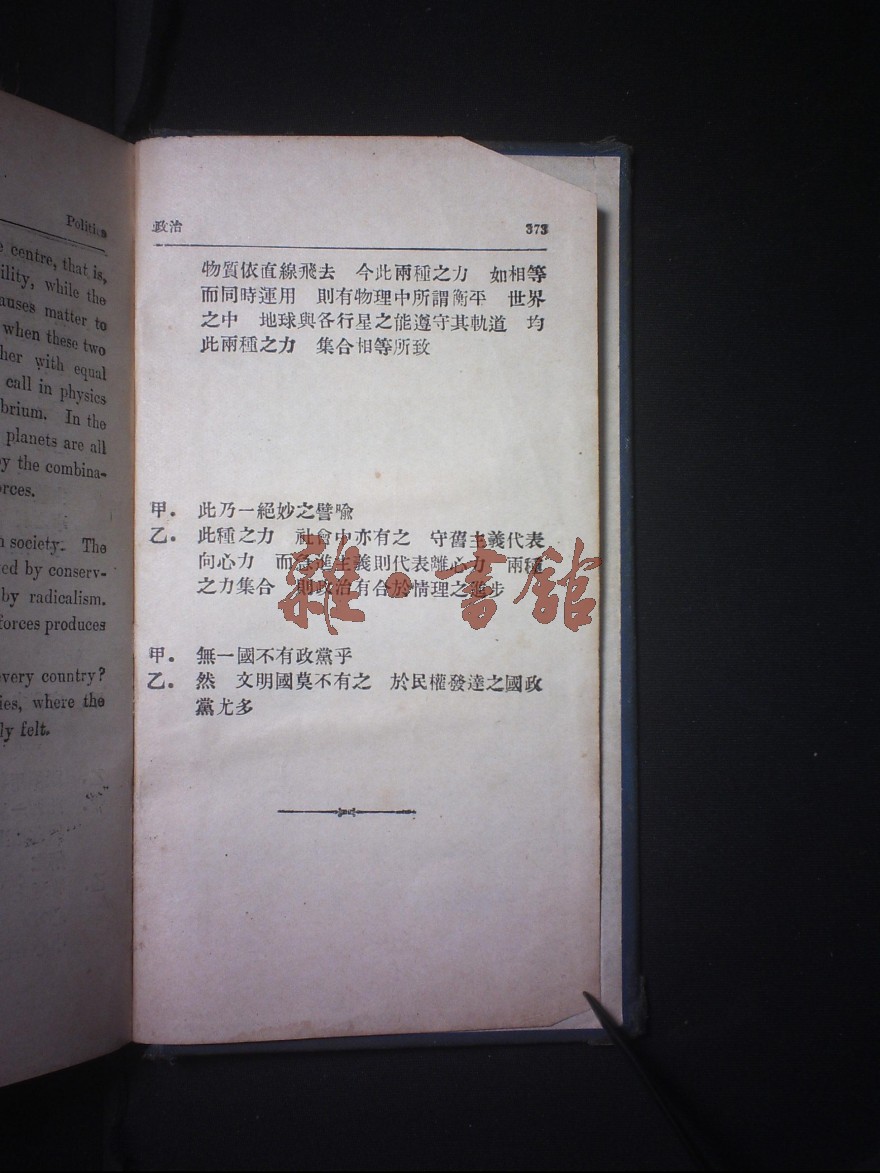 Politics
e centre, that is,
ility, while the
auses matter to
when these two
her with equal
call in physics
brium. In the
planets are all
y the combina-
rces.
n society. The
ted by conserv-
by radicalism.
forces produces
every country?
ies, where the
ly felt.
政治 373
物質依直線飛去 今此兩種之力 如相等
而同時運用 則有物理中所謂衡平 世界
之中 地球與各行星之能遵守其軌道 均
此兩種之力 集合相等所致
甲. 此乃一絕妙之譬喻
乙. 此種之力 社會中亦有之 守舊主義代表
向心力 而急進主義則代表離心力 兩種
之力集合 則政治有合於情理之進步
甲. 無一國不有政黨乎
乙. 然 文明國莫不有之 於民權發達之國政
黨尤多
雜·書館